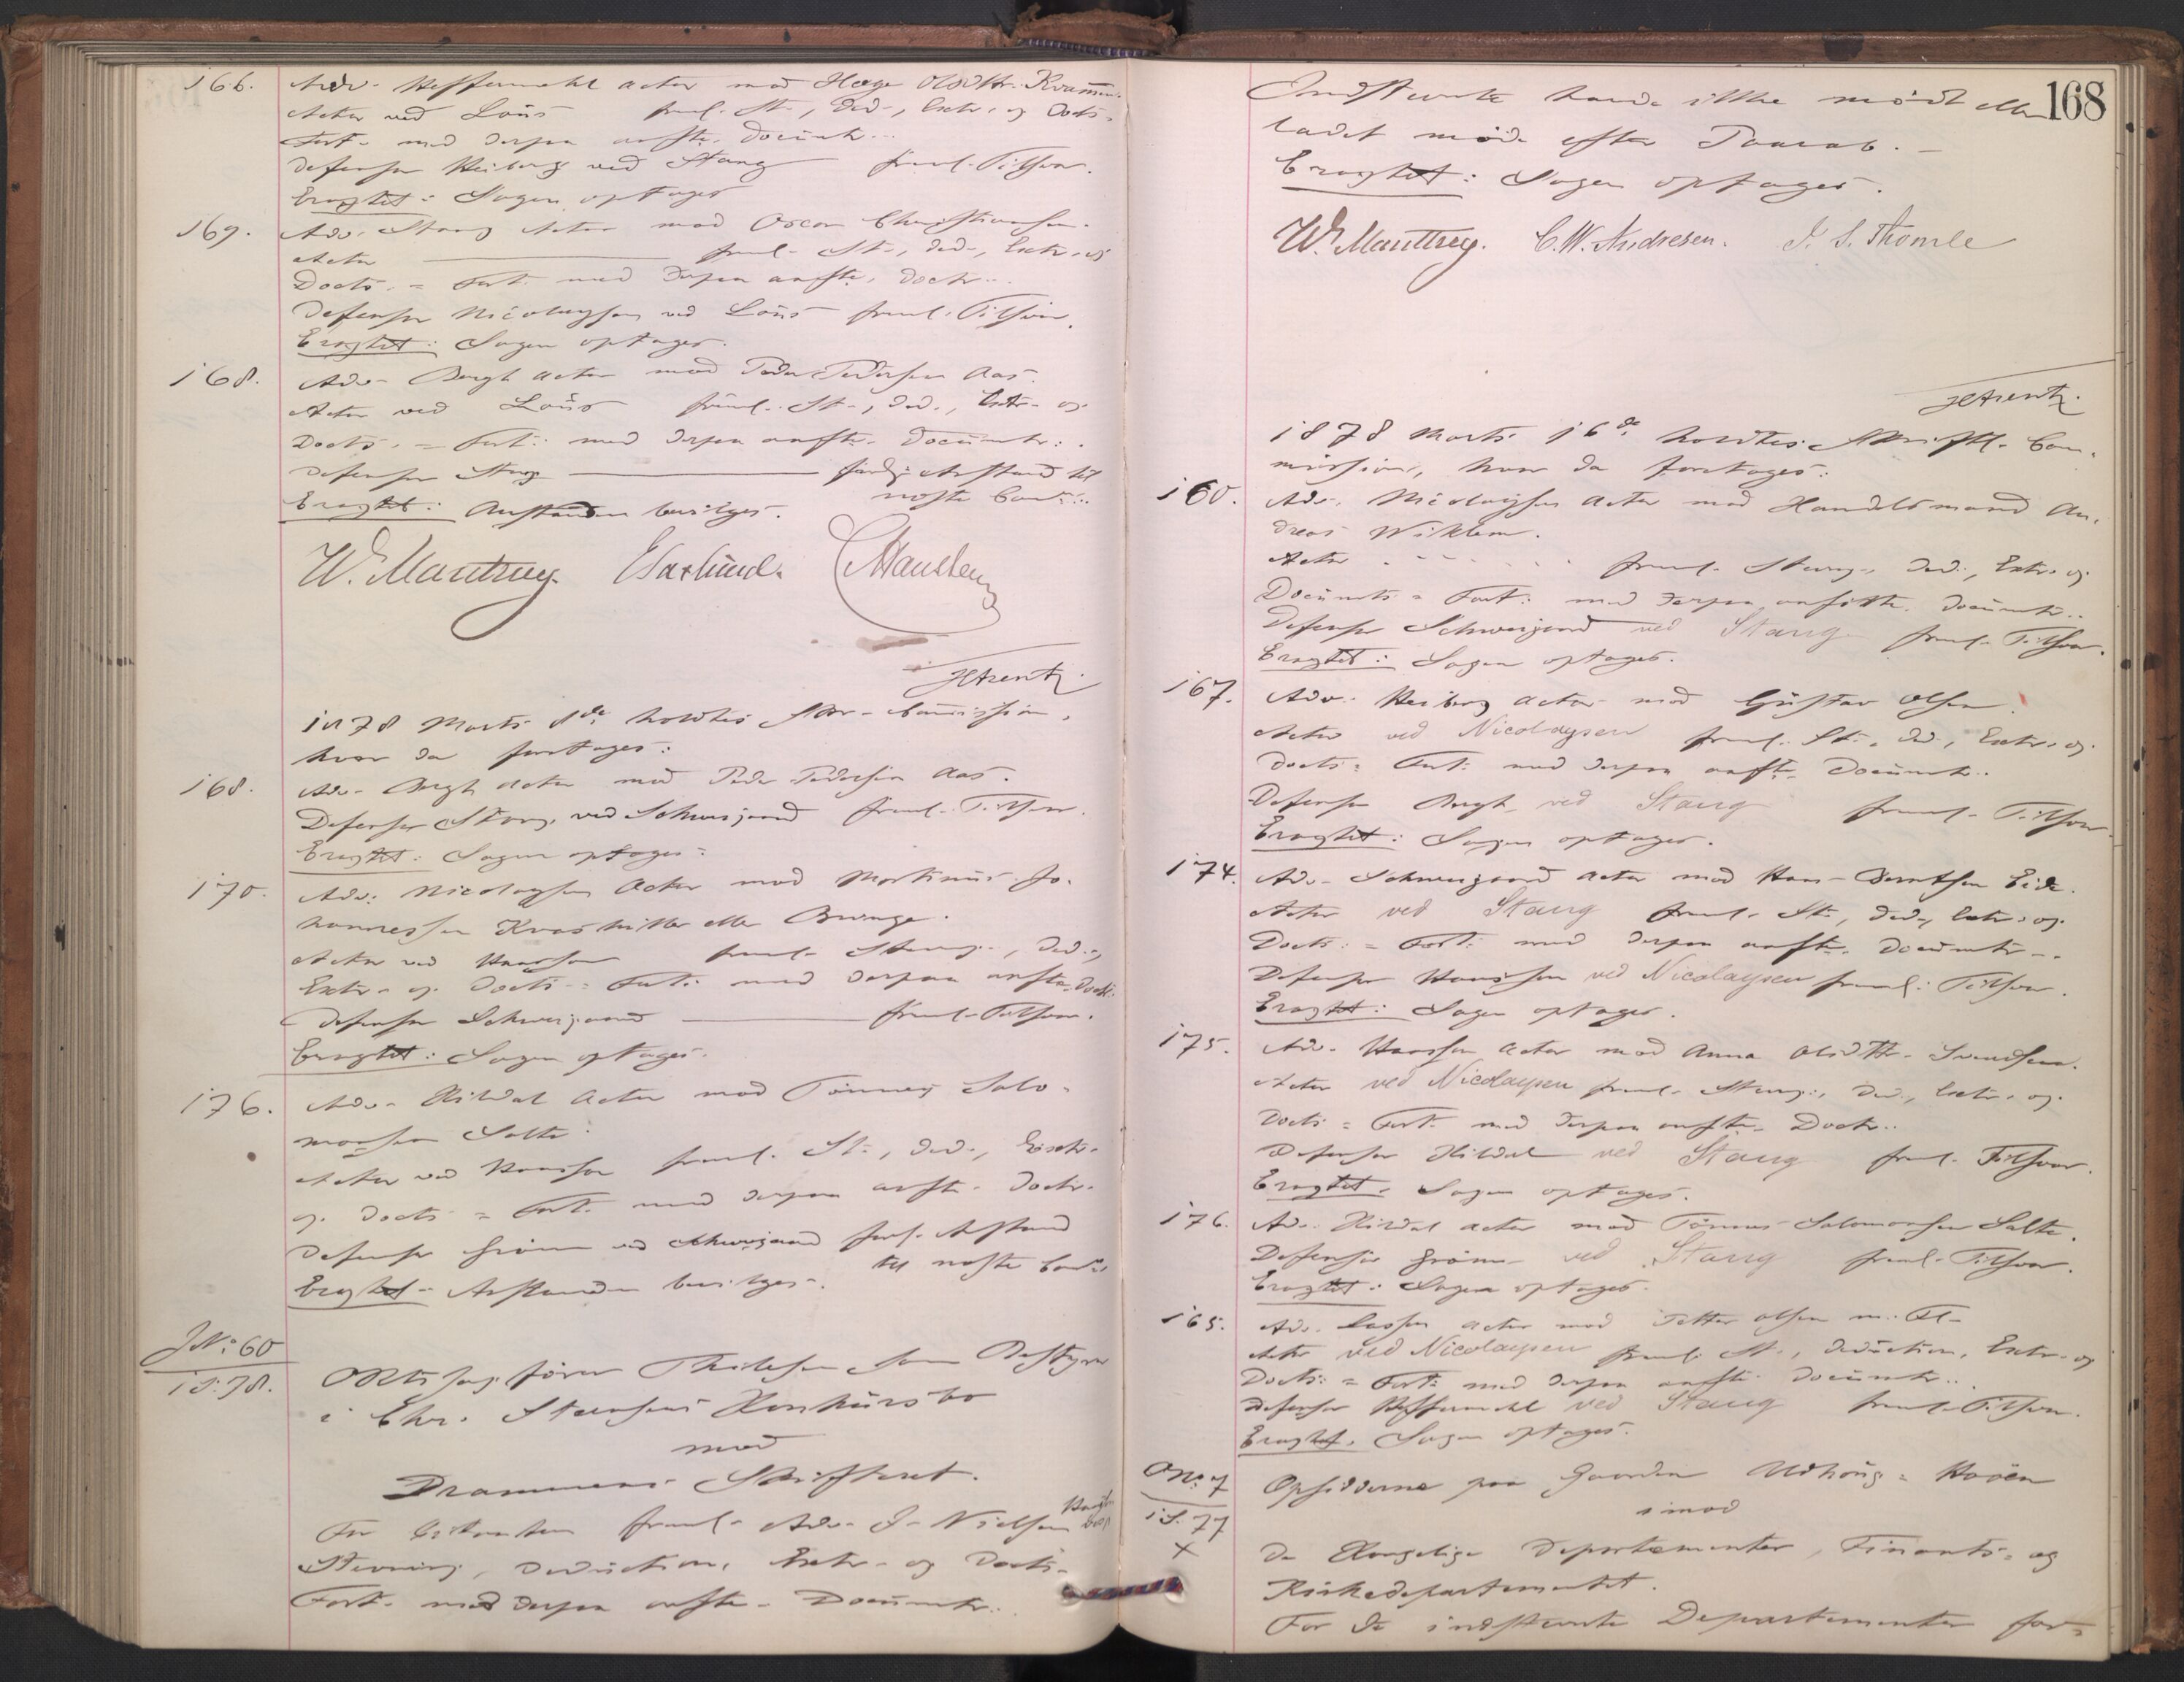 166. Adv. Heffermehl Actor mod Hege Olsdtr. Kvammen.
Actor ved Löus freml. St., Ded., Extr. og Docts.
Fort. med derpaa anfte. Documtr.
Defensor Heiberg ved Stang freml. Tilsvar.
Eragtet: Sagen optages
169. Adv. Stang Actor mod Oscar Christiansen.
Actor freml. St., Ded., Extr. og
Docts. = Fort. med derpaa anfte. Doctr.
Defensor Nicolaysen ved Löus freml. Tilsvar.
Eragtet: Sagen optages.
168. Adv. Bergh Actor mod Peder Pedersen Aas.
Actor ved Löus freml. St., Ded., Extr. og
Docts. = Fort. med derpaa anfte. Documtr.
Defensor Stang forl. Anstand til
næste Comm.
Eragtet: Anstanden bevilges.
W. Mantzey. E Saxlund. C Hansteen
JArentz.
1878 Marts 8de holdtes Skr. Commission,
hvor da foretages:
168. Adv. Bergh Actor mod Peder Pedersen Aas.
Defensor Stang ved Schweigaard freml. Tilsvar.
Eragtet: Sagen optages.
170. Adv. Nicolaysen Actor mod Martinius Jo-
hannessen Kvashitler eller Bringe.
Actor ved Haarsen freml. Stevng., Ded.,
Extr. og Docts. = Fort. med derpaa anfte. Doctr.
Defensor Schweigaard freml. Tilsvar.
Eragtet: Sagen optages.
176. Adv. Hildal Actor mod Tönnes Salo-
monsen Salte.
Actor ved Haarsen freml. St., Ded., Extr.
og Docts = Fort. med derpaa anfte. Doctr.
Defensor Grönn ved Schweigaard forl. Anstand
til næste Comm.
Eragtet. Anstanden bevilges.
JNo: 60
i S. 78. Overretssagförer Thilesen som Bestyrer
i Chr. Steensens Konkursbo
mod
Drammens Skifteret.
For Citanten freml. Adv. J. Nielsen ved
Stevning, Deduction, Extr. og Docts.
Fort. med derpaa anfte. Documtr.
168
Indstevnte havde ikke mödt eller
ladet möde efter Paaraab.
Eragtet: Sagen optages.
W. Mantzey. C. W. Andresen. J. S. Thomle
JArentz.
1878 Marts 16de holdtes Skriftl. Com-
mission, hvor da foretages:
160. Adv. Nicolaysen Actor mod Handelsmand An-
dreas Wiklem.
Actor freml. Stevng., Ded., Extr. og
Documts = Fort: med derpaa anförte Documtr.
Defensor Schweigaard ved Stang freml. Tilsvar.
Eragtet: Sagen optages.
167. Adv. Heiberg Actor mod Gustav Olsen.
Actor ved Nicolaysen freml. St., Ded., Extr. og
Docts = Fort: med derpaa anfte. Documtr.
Defensor Bergh ved Stang freml. Tilsvar.
Eragtet: Sagen optages.
174. Adv. Schweigaard Actor mod Hans Berntsen Eide.
Actor ved Stang freml. St., Ded., Extr. og
Docts = Fort: med derpaa anfte. Documtr.
Defensor Haarsen ved Nicolaysen freml. Tilsvar.
Eragtet: Sagen optages.
175. Adv. Haarsen Actor mod Anna Olsdtr. Svendsen.
Actor ved Nicolaysen freml. Stevng., Ded., Extr. og
Docts = Fort. med derpaa anfte. Doctr.
Defensor Hildal ved Stang freml. Tilsvar.
Eragtet. Sagen optages.
176. Adv. Hildal Actor mod Tönnes Salomonsen Salte.
Defensor Grönn ved Stang freml. Tilsvar.
Eragtet: Sagen optages.
165. Adv. Lassen Actor mod Petter Olsen m. Fl.
Actor ved Nicolaysen freml. St., Deduction, Extr. og
Docts = Fort: med derpaa anfte. Documtr.
Defensor Heffermehl ved Stang freml. Tilsvar.
Eragtet. Sagen optages.
ONo: 7
i S. 77
x
Opsidderne paa Gaarden Udhöug = Haöen
imod
De Kongelige Departementer, Finants- og
Kirkedepartementet.
For de indstevnte Departementer for-